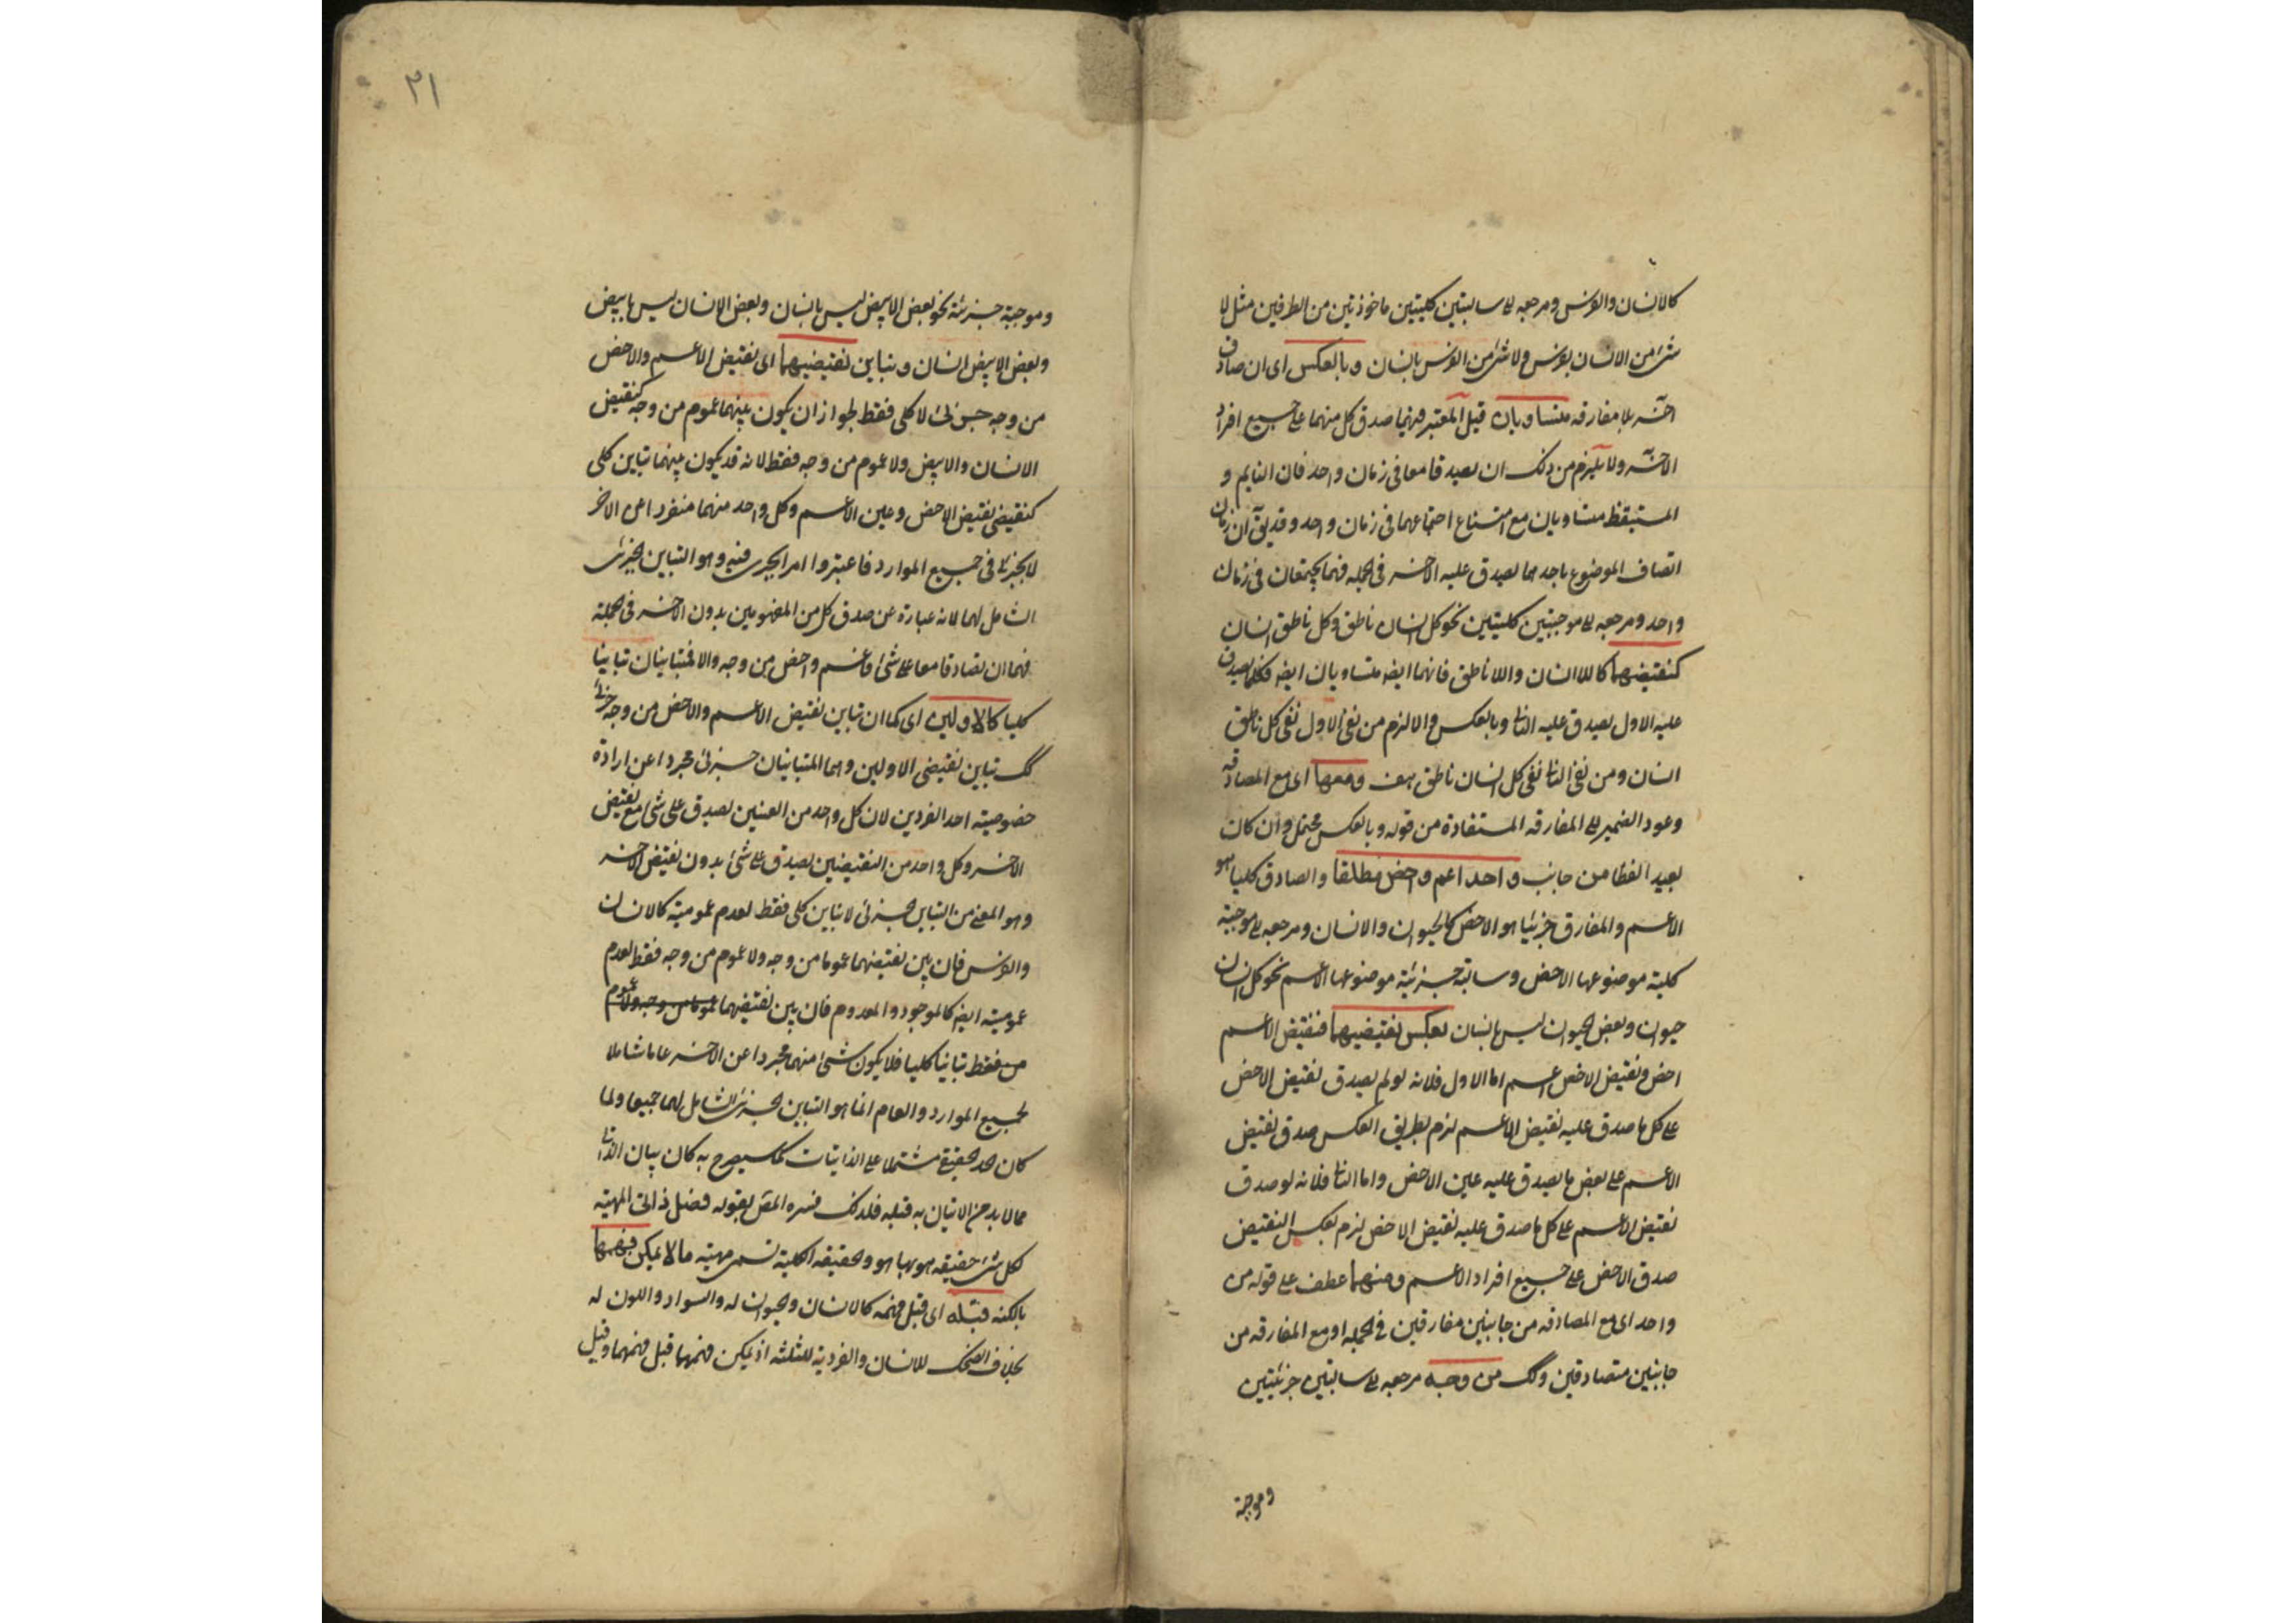 كالانسان والفرس ومرجعه لے سالبتين كليتين ماخوذتين من الطرفين مثل لا
شئ من الانسان بفرس ولا شئ من الفرس بانسان وبالعكس اى ان صادق
آخر بلا مفارقه متساويان قيل المعتبر فيهما صدق كل منهما على جميع افراد
الآخر ولا يلزم من ذلك ان يصدقا معا فى زمان واحد فان النايم و
المستيقظ متساويان مع امتناع اجتماعهما فى زمان واحد وقد يق ان زمان
اتصاف الموضوع باحدهما يصدق عليه الاخر فى الجمله فهما يجتمعان فى زمان
واحد ومرجعه لے موجبتين كليتين نحو كل انسان ناطق وكل ناطق انسان
كنقيضيهما كاللاانسان واللاناطق فانهما ايضه متساويان ايضه فكلما يصدق
عليه الاول يصدق عليه الثانے وبالعكس والا لزم من نفى الاول نفى كل ناطق
انسان ومن نفى الثانے نفى كل انسان ناطق هف ومعها اى مع المصادقه
وعود الضمير لے المفارقه المستفادة من قوله وبالعكس محتمل وان كان
بعيد الفظا من جانب واحد اعم واخص مطلقا والصادق كليا هو
الاعم والمفارق جزئيا هو الاخص كالحيوان والانسان ومرجعه لے موجبة
كلية موضوعها الاخص وسالبة جزئية موضوعها الاعم نحو كل انسان
حيوان وبعض الحيوان ليس بانسان بعكس نقيضيهما فنقيض الاعم
اخص ونقيض الاخص اعم اما الاول فلانه لو لم يصدق نقيض الاخص
على كل ما صدق عليه نقيض الاعم لزم بطريق العكس صدق نقيض
الاعم على بعض ما يصدق عليه عين الاخص واما الثانے فلانه لو صدق
نقيض الاعم على كل ما صدق عليه نقيض الاخص لزم بعكس النقيض
صدق الاخص على جميع افراد الاعم ومنهما عطف على قوله من
واحد اى مع المصادقه من جانبين مفارقين فى الجمله او مع المفارقه من
جانبين متصادقين وكك من وجه مرجعه لے سالبتين جزئيتين
وموجبة
٢١
وموجبة جزئية نحو بعض الابيض ليس بانسان وبعض الانسان ليس بابيض
وبعض الابيض انسان وتباين نقيضيهما اى نقيض الاعم والاخص
من وجه جزئى لا كلى فقط لجواز ان يكون بينهما عموم من وجه كنقيض
الانسان والابيض ولا عموم من وجه فقط لانه قد يكون بينهما تباين كلى
كنقيضى نقيض الاخص وعين الاعم وكل واحد منهما منفردا عن الاخر
لا يجرى فى جميع الموارد فاعتبروا امرا يجرى فيه وهو التباين الجزئى
الشامل لهما لانه عبارة عن صدق كل من المفهومين بدون الاخر فى الجملة
فهما ان تصادقا معا على شئ فاعم واخص من وجه والا فمتباينان تباينا
كليا كالاولين اى كما ان تباين نقيض الاعم والاخص من وجه جزئى
كك تباين نقيضى الاولين وهما المتباينان جزئى مجردا عن ارادة
خصوصية احد الفردين لان كل واحد من العينين يصدق على شئ مع نقيض
الاخر وكل واحد من النقيضين يصدق على شئ بدون نقيض الاخر
وهو المعنى من التباين الجزئى لا تباين كلى فقط لعدم عموميته كالانسان
والفرس فان بين نقيضيهما عموما من وجه ولا عموم من وجه فقط لعدم
عموميته ايضه كالموجود والمعدوم فان بين نقيضيهما عموما من وجه ولا عموم
من فقط تباينا كليا فلا يكون شئ منهما مجردا عن الاخر عاما شاملا
لجميع الموارد والعام انما هو التباين الجزئى الشامل لهما جميعا ولما
كان الحد الحقيقى مشتملا على الذاتيات كما سيصرح به كان بيان الذاتى
مما لا بد من الاتيان به قبله فلذلك فسره المص بقوله فصل ذاتى المهية
لكل شئ حقيقه هو بها هو والحقيقه الكلية تسمى مهية ما لا يمكن فهمها
بالكنه قبله اى قبل فهمه كالانسان والحيوان له والسواد واللون له
بخلاف الضحك للانسان والفردية للثلثه اذ يمكن فهمهما قبل فهمهما وقيل